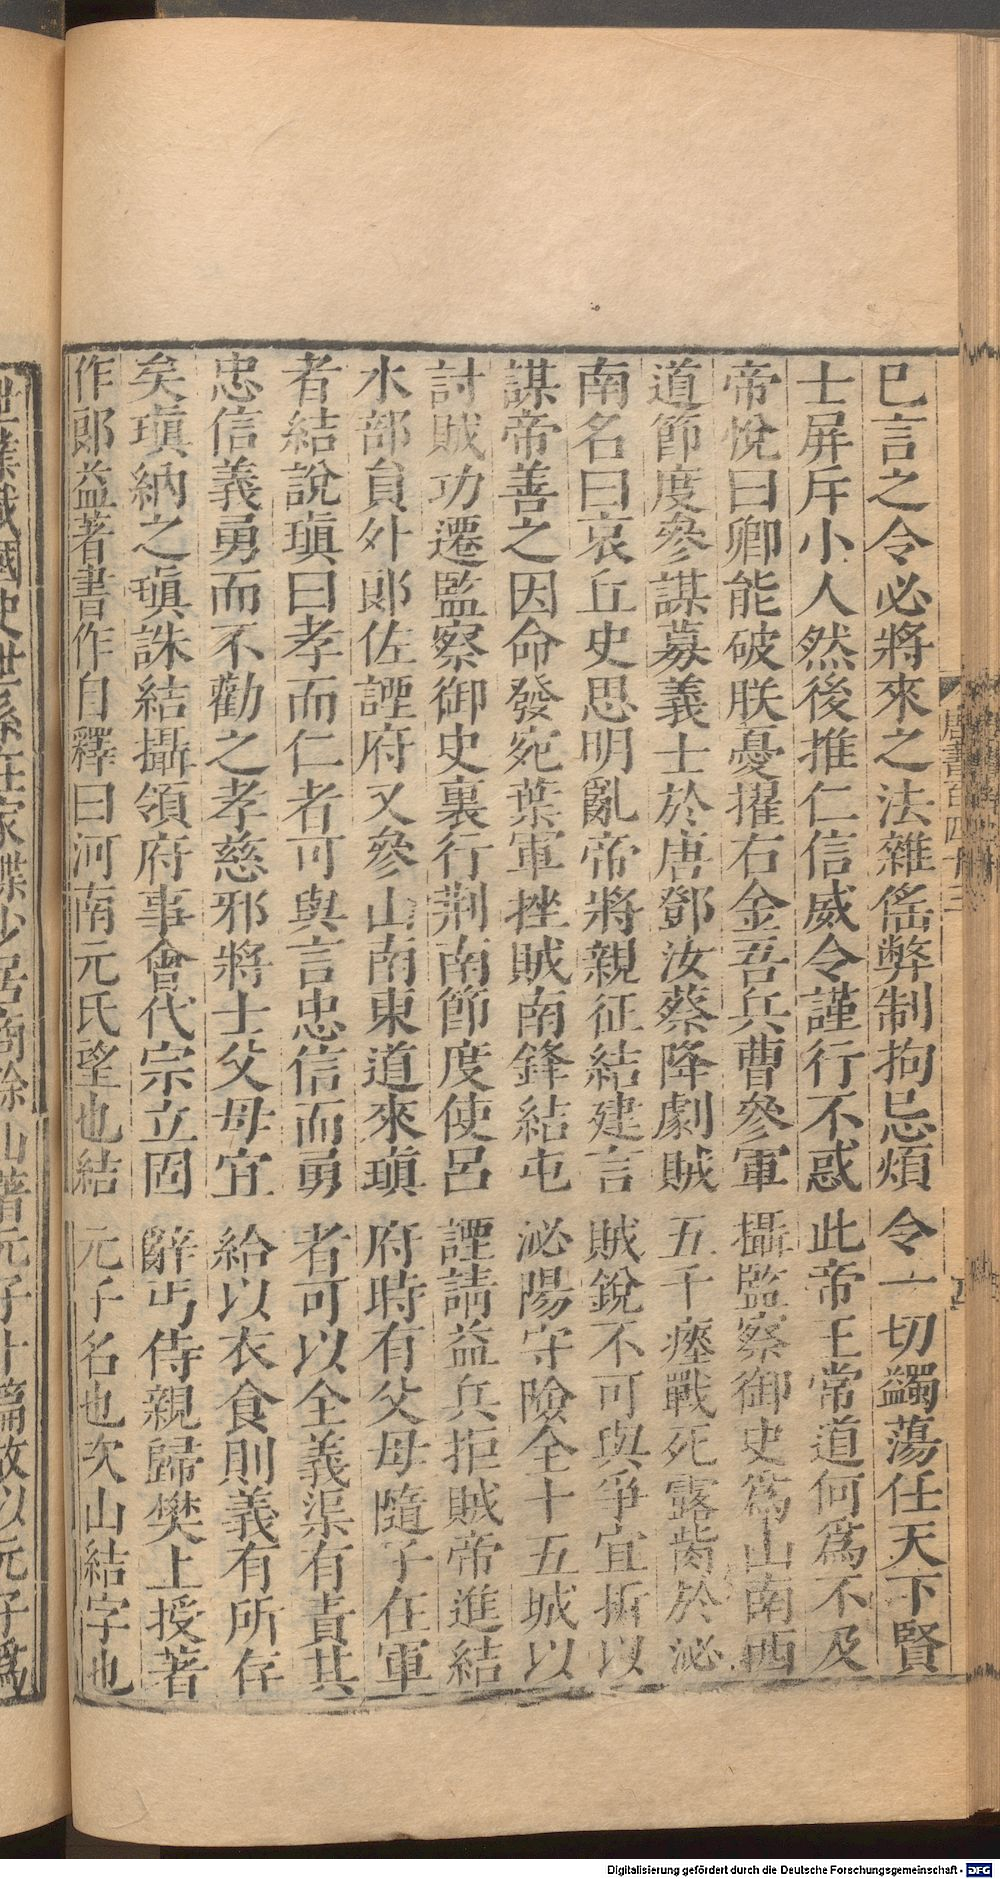 巳言之令必將來之法雜傜弊制拘忌煩令一切蠲蕩任天下賢
士屏斥小人然後推仁信威令謹行不惑此帝王常道何爲不及
帝悅曰卿能破朕憂擢右金吾兵曹參軍攝監察御史爲山南西
道節度參謀募義士於唐鄧汝蔡降劇賊五千瘞戰死露胔於泌
南名曰哀丘史思明亂帝將親征結建言賊銳不可與爭宜折以
謀帝善之因命發宛葉軍挫賊南鋒結屯泌陽守險全十五城以
討賊功遷監察御史裏行荆南節度使呂諲請益兵拒賊帝進結
水部員外郞佐諲府又參山南東道來瑱府時有父母隨子在軍
者結說瑱曰孝而仁者可與言忠信而勇者可以全義渠有責其
忠信義勇而不勸之孝慈邪將士父母宜給以衣食則義有所存
矣瑱納之瑱誅結攝領府事會代宗立固辭丐侍親歸樊上授著
作郞益著書作自釋曰河南元氏望也結元子名也次山結字也
世業載國史世系在家諜少居商餘山著元子十篇故以元子爲
唐書百四十三
Digitalisierung gefördert durch die Deutsche Forschungsgemeinschaft - DFG